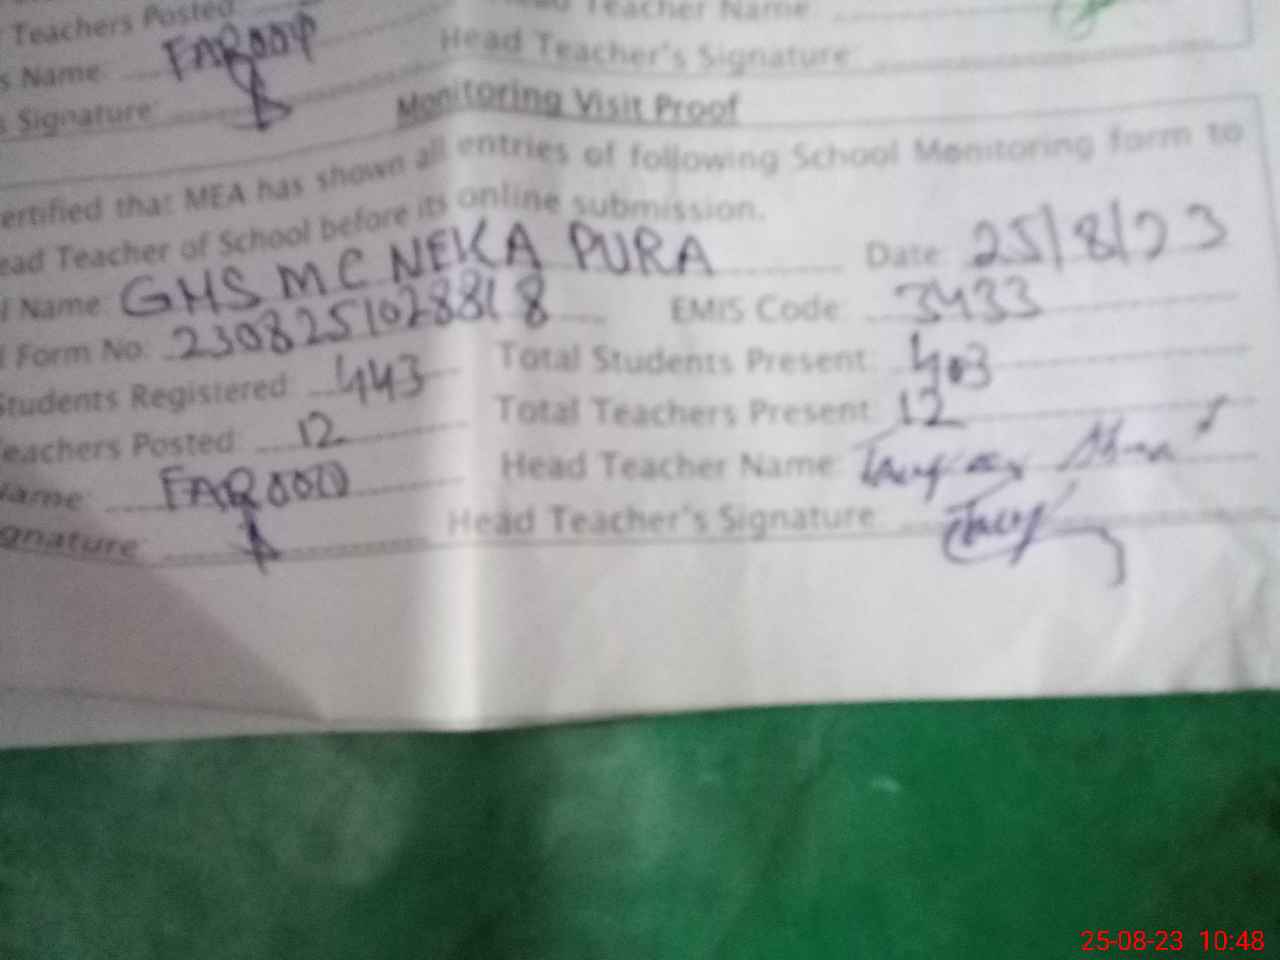 Teachers Posted
Head Teacher Name:
s Name: FAROOQ
Head Teacher's Signature:
s Signature:
Monitoring Visit Proof
ertified that MEA has shown all entries of following School Monitoring form to
ead Teacher of School before its online submission.
Date: 25/8/23
l Name: GHS MC NEKA PURA
EMIS Code: 3433
l Form No:
Students Registered: 443
Total Students Present: 403
eachers Posted: 12
Total Teachers Present: 12
Name: FAROOQ
Head Teacher Name:
gnature:
Head Teacher's Signature:
25-08-23 10:48